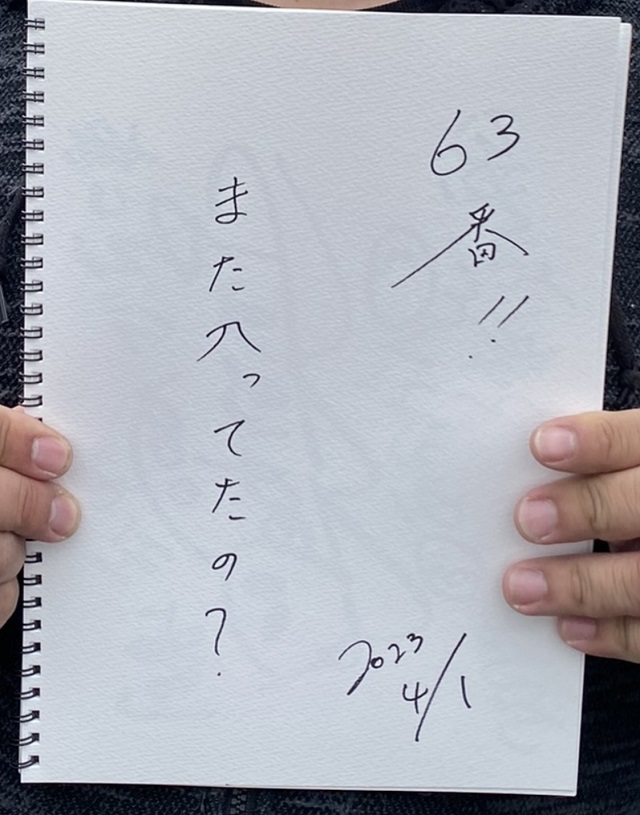 63番!!
また入ってたの?
2023
4/1